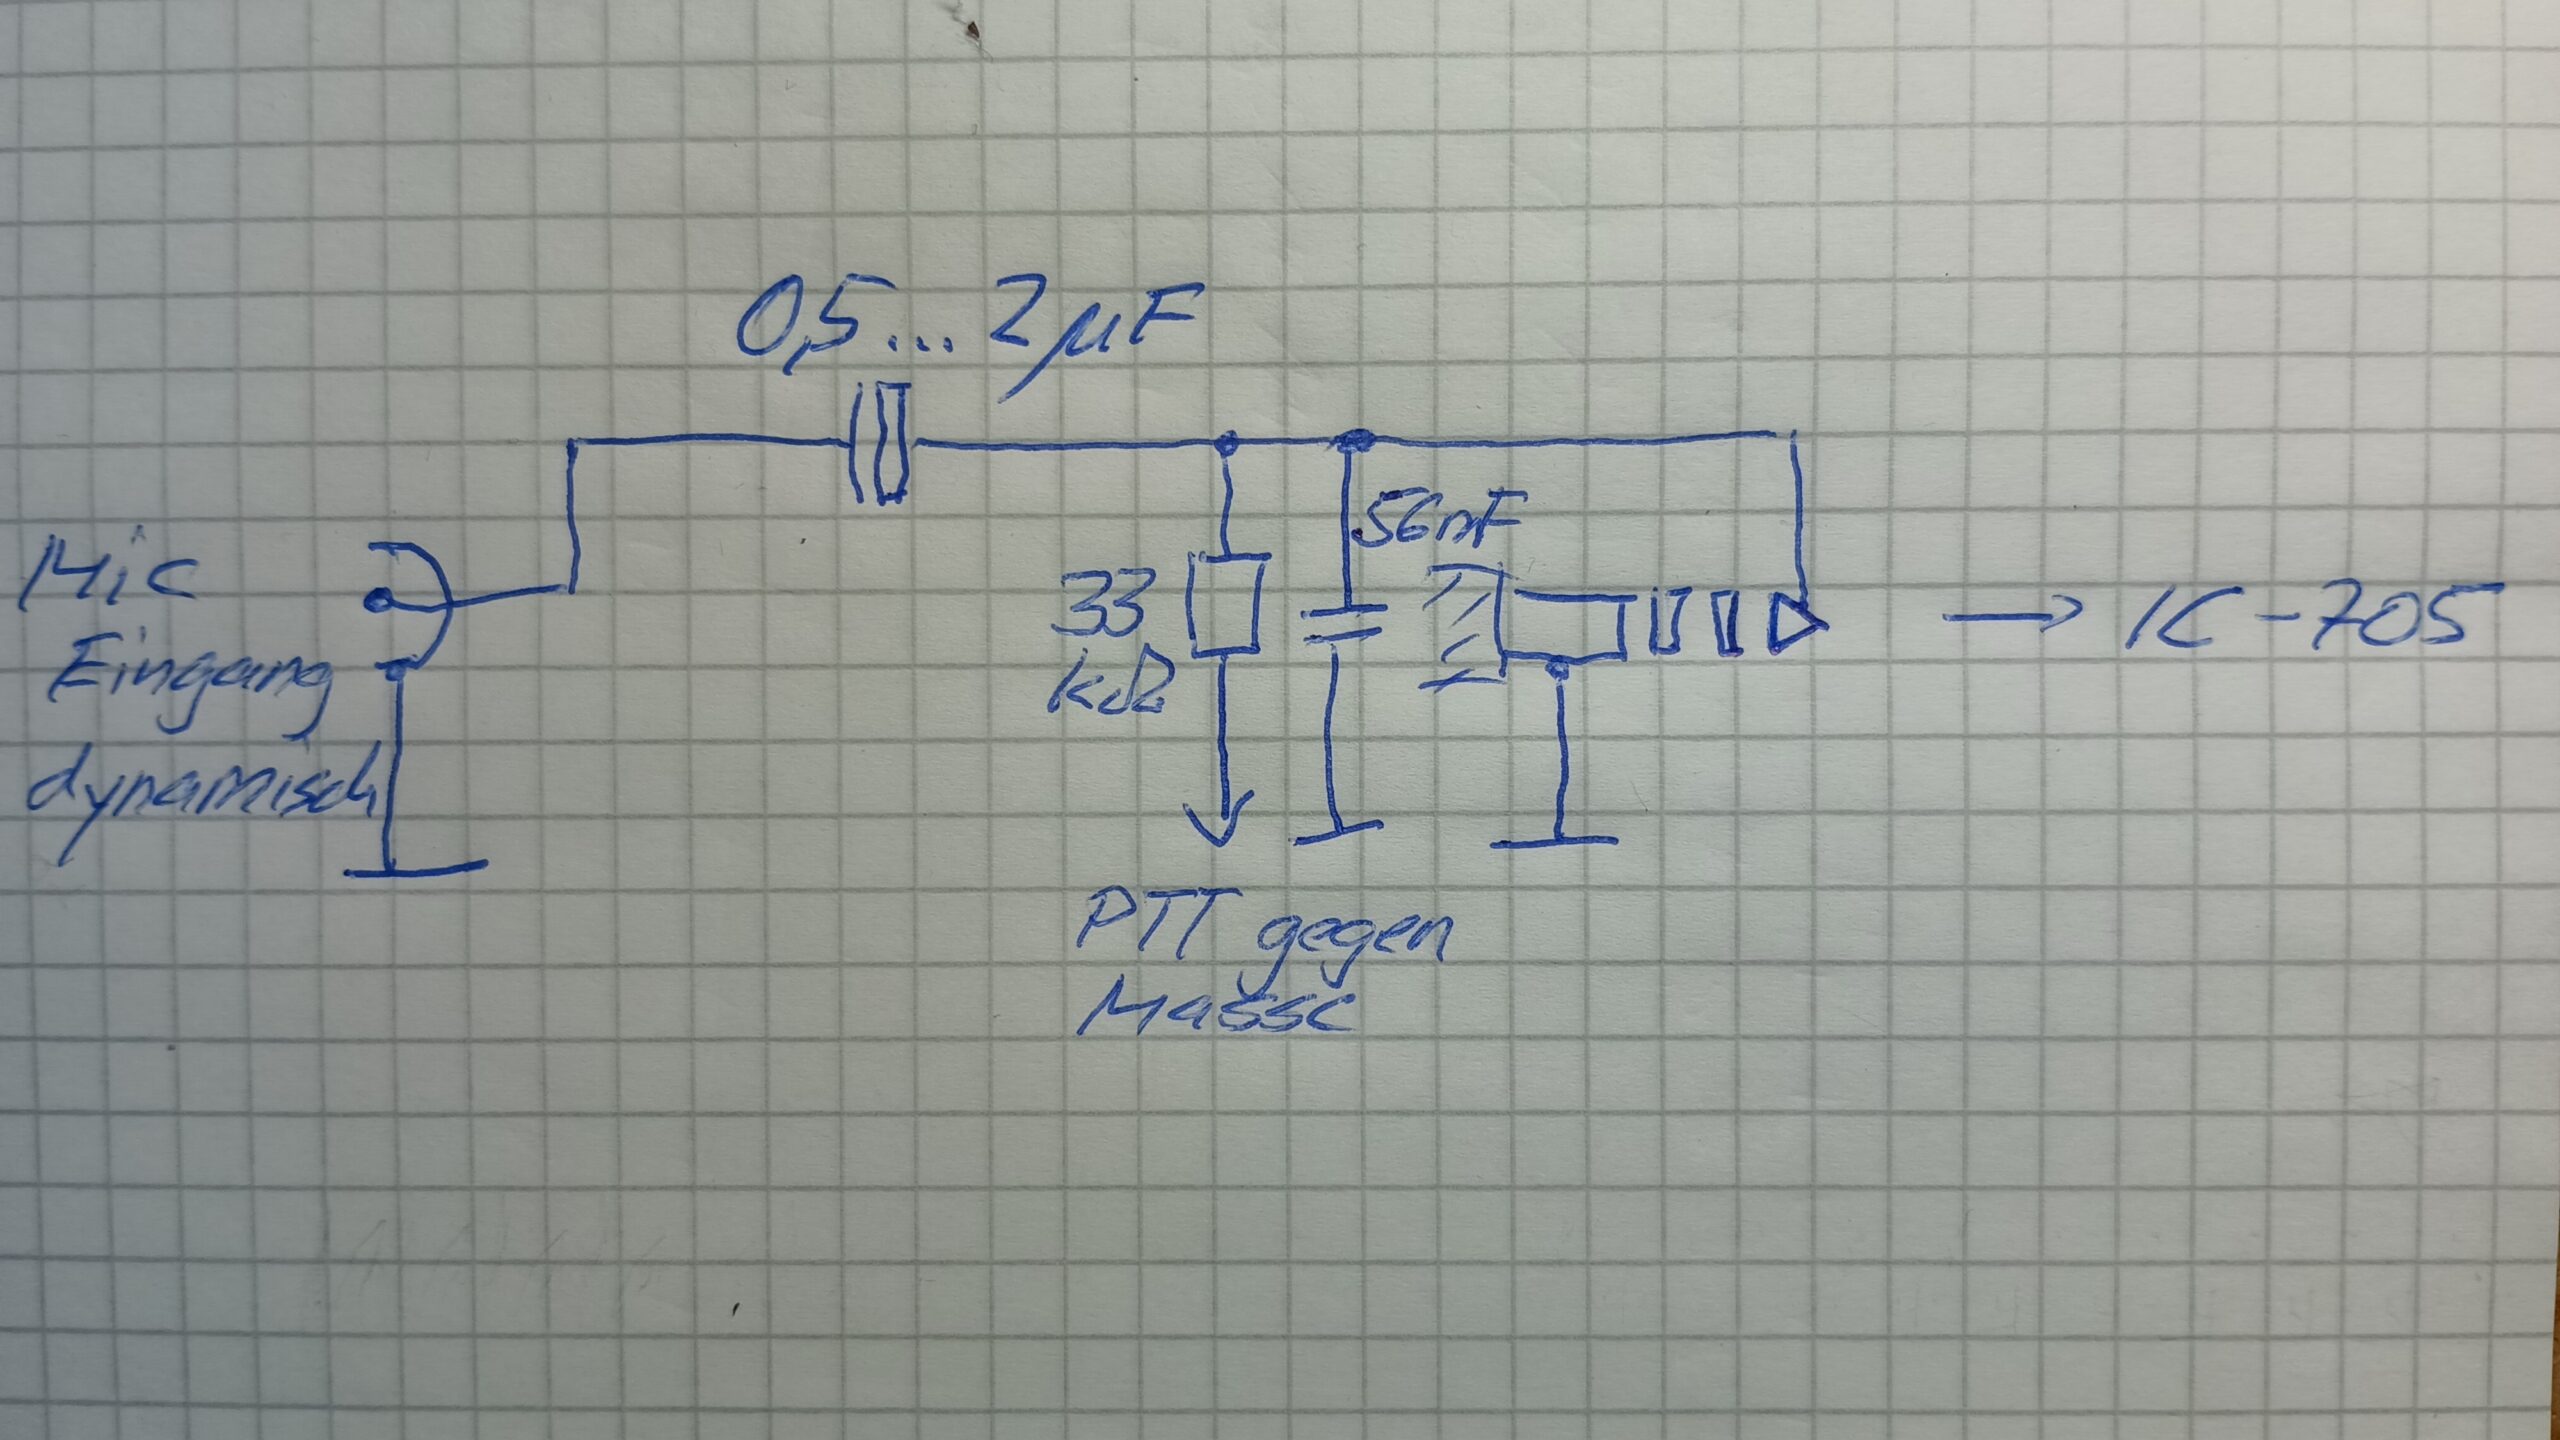 0,5...2µF
56nF
Mic
Eingang
dynamisch
33
kΩ
→ IC-705
PTT gegen
Masse